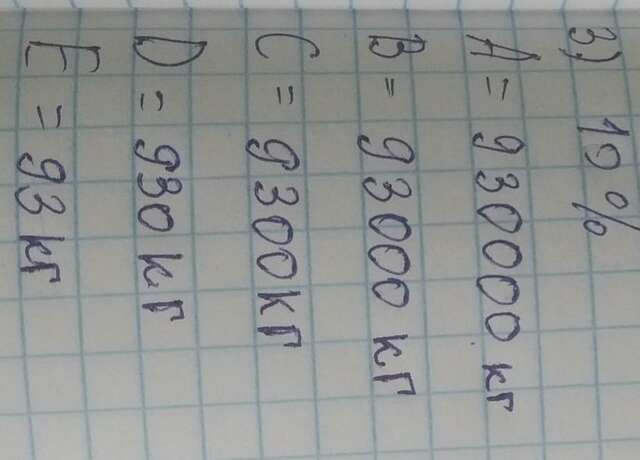 3) 10%
A = 930000 кг
B = 93000 кг
C = 9300 кг
D = 930 кг
E = 93 кг